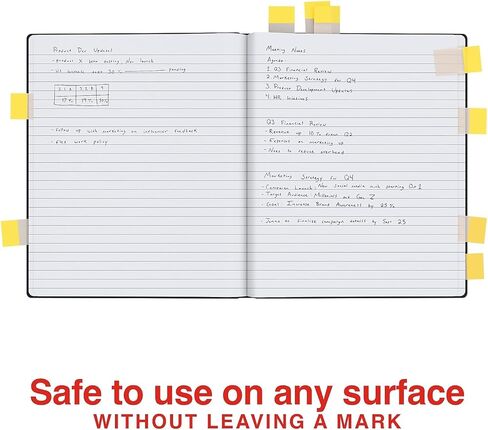 Product Dev Updates
- product X beta testing, Nov launch
- all animals over 30 % pending
17% 19%
- Follow up with marketing on influencer feedback
- flex work policy
Meeting Notes
Agenda:
1. Q3 Financial Review
2. Marketing Strategy for Q4
3. Product Development Updates
4. HR Initiatives
Q3 Financial Review
- Revenue up 10% from Q2
- Expenses on marketing up
- Need to reduce overhead
Marketing Strategy for Q4
- Campaign Launch: New social media push starting Oct 1
- Target Audience Millenials and Gen Z
- Goal: Increase Brand Awareness by 25%
- to finalize campaign details by Sept 25
Safe to use on any surface
WITHOUT LEAVING A MARK